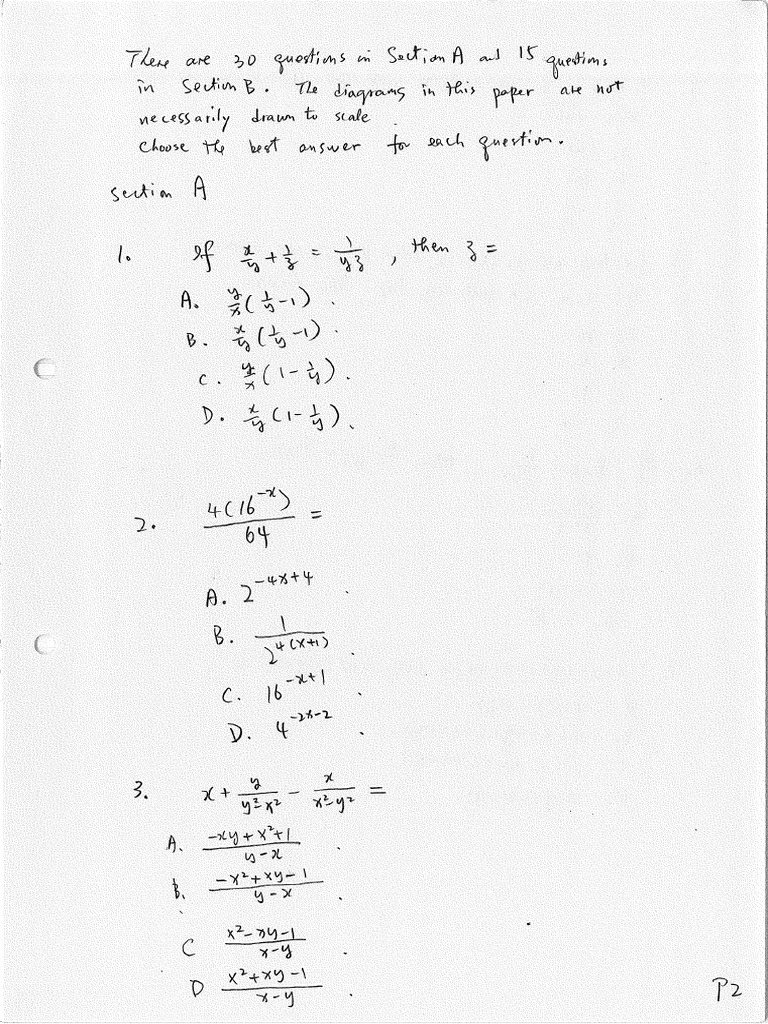 There are 30 questions in Section A and 15 questions
in Section B. The diagrams in this paper are not
necessarily drawn to scale
Choose the best answer for each question.
section A
1. If x/y + 1/z = 1/yz, then z =
A. y/x (1/y - 1).
B. x/y (1/y - 1).
C. y/x (1 - 1/y).
D. x/y (1 - 1/y).
2. 4(16^-x)/64 =
A. 2^-4x+4.
B. 1/2^4(x+1).
C. 16^-x+1.
D. 4^-2x-2.
3. x + y/(y²-x²) - x/(x²-y²) =
A. (-xy+x²+1)/(y-x).
B. (-x²+xy-1)/(y-x).
C (x²-xy-1)/(x-y).
D (x²+xy-1)/(x-y).
P2